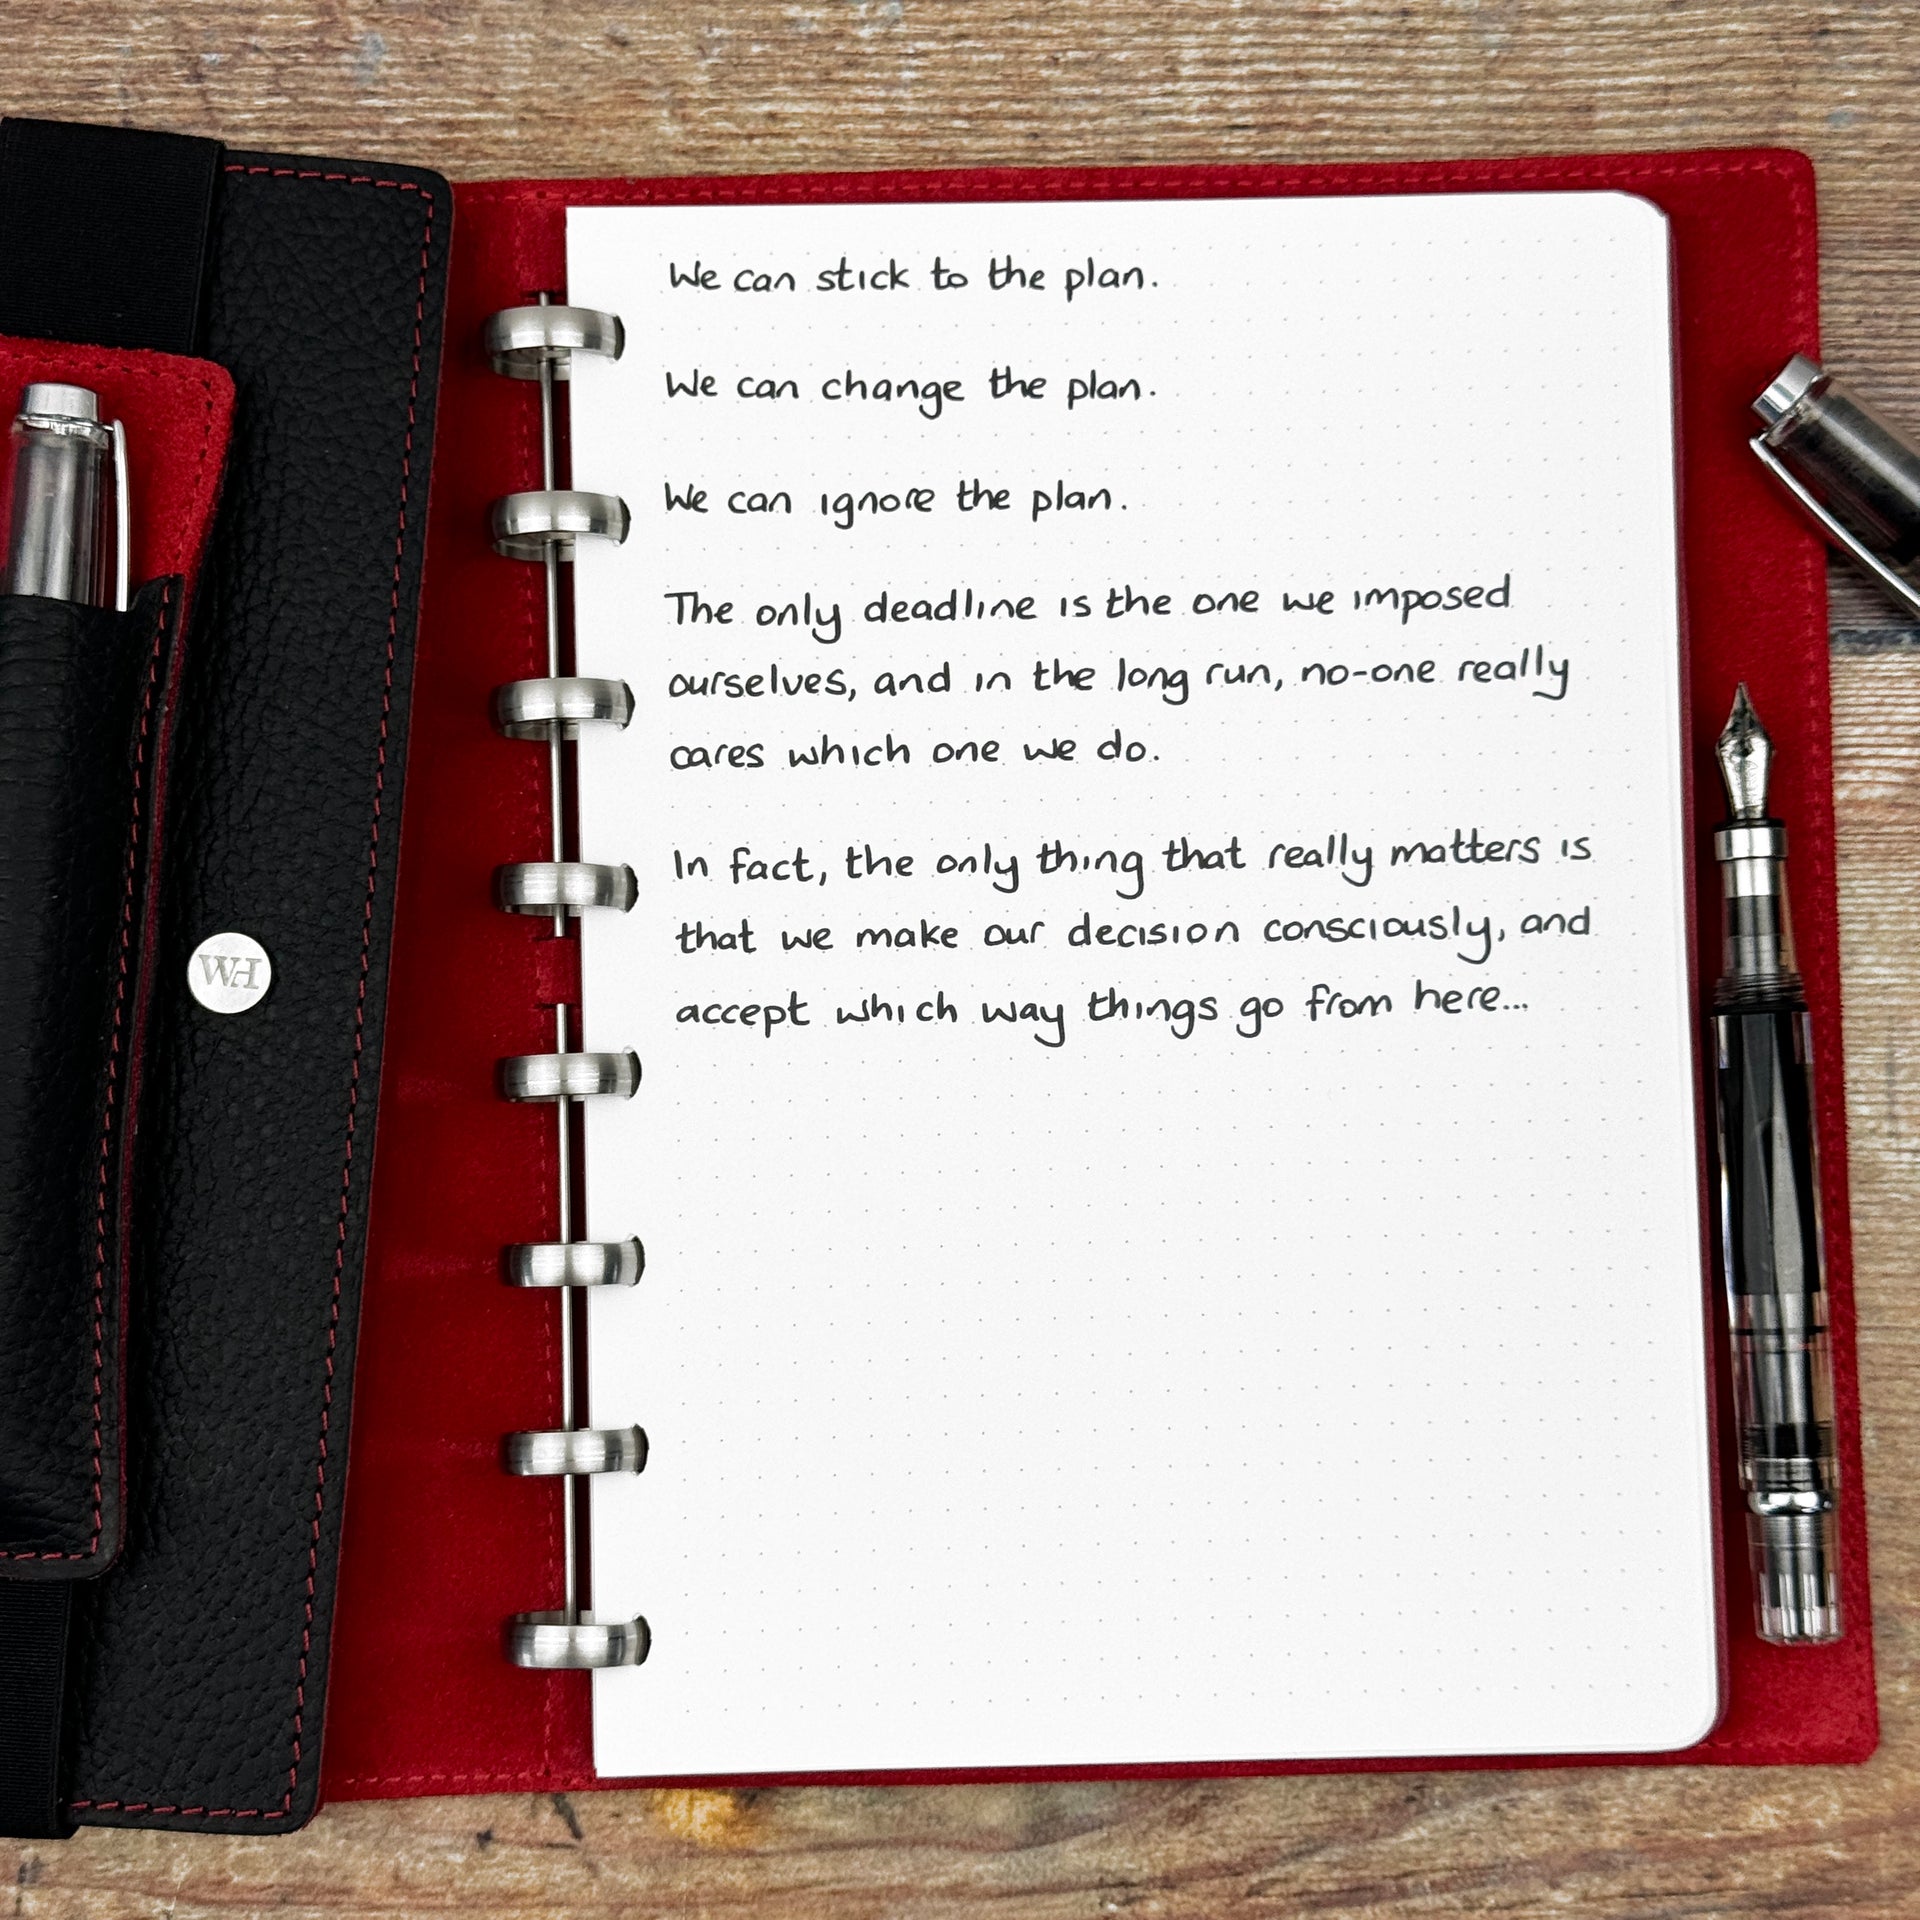 We can stick to the plan.
We can change the plan.
We can ignore the plan.
The only deadline is the one we imposed
ourselves, and in the long run, no-one really
cares which one we do.
In fact, the only thing that really matters is
that we make our decision consciously, and
accept which way things go from here...
WH